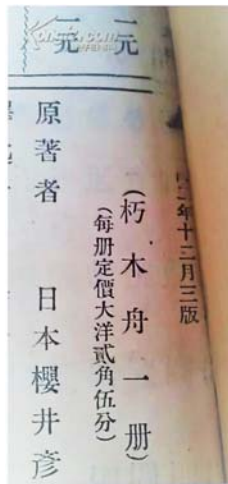 年十二月三版
(朽木舟一册)
(每册定價大洋貳角伍分)
原著者 日本櫻井彥
二元
一元